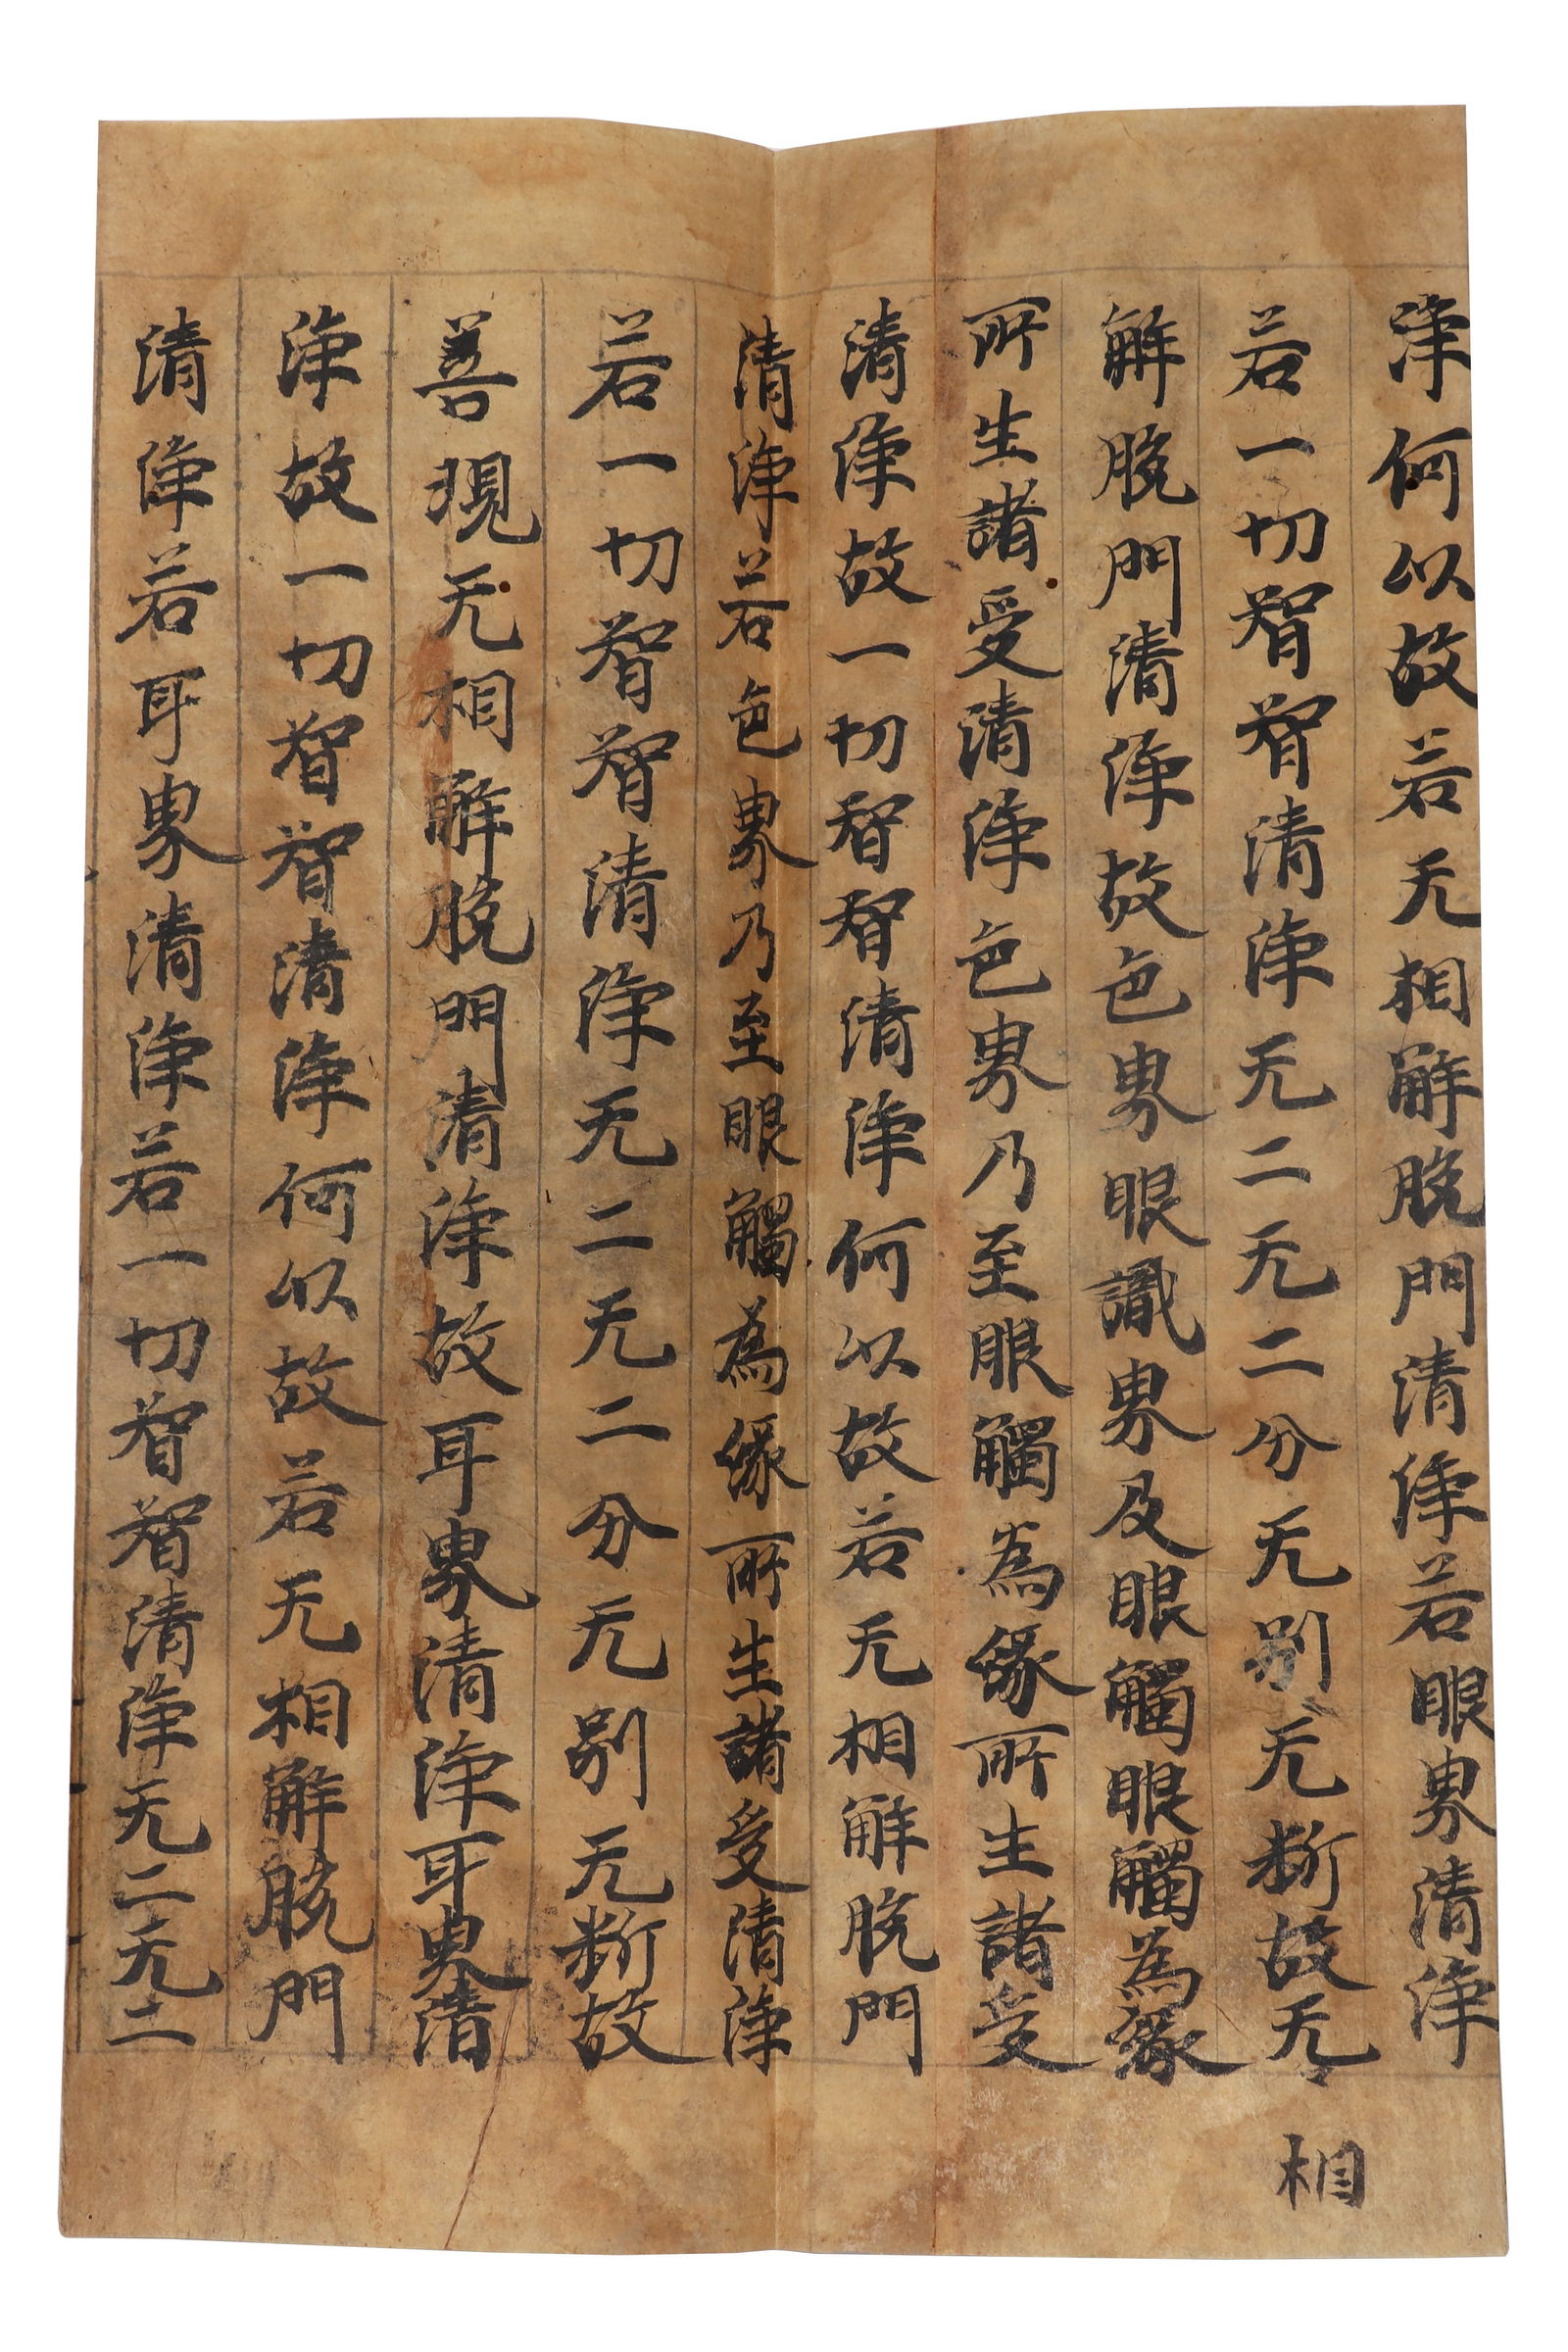 淨何以故若无相解脫門清淨若眼界清淨
若一切智智清淨无二无二分无别无断故无
相
解脫門清淨故色界眼識界及眼觸眼觸為緣
所生諸受清淨色界乃至眼觸為緣所生諸受
清淨故一切智智清淨何以故若无相解脫門
清淨若色界乃至眼觸為緣所生諸受清淨
若一切智智清淨无二无二分无别无断故
善現无相解脫門清淨故耳界清淨耳界清
淨故一切智智清淨何以故若无相解脫門
清淨若耳界清淨若一切智智清淨无二无二